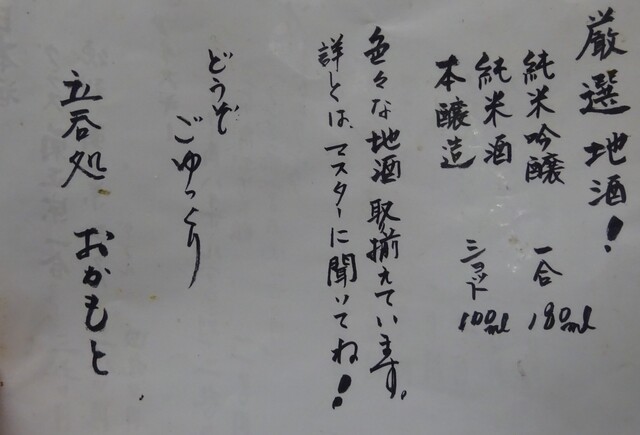 厳選地酒!
純米吟醸 一合 180ml
純米酒 ショット 100ml
本醸造
色々な地酒取揃えています。
詳とくは、マスターに聞いてね!
どうぞ
ごゆっくり
立呑処 おかもと